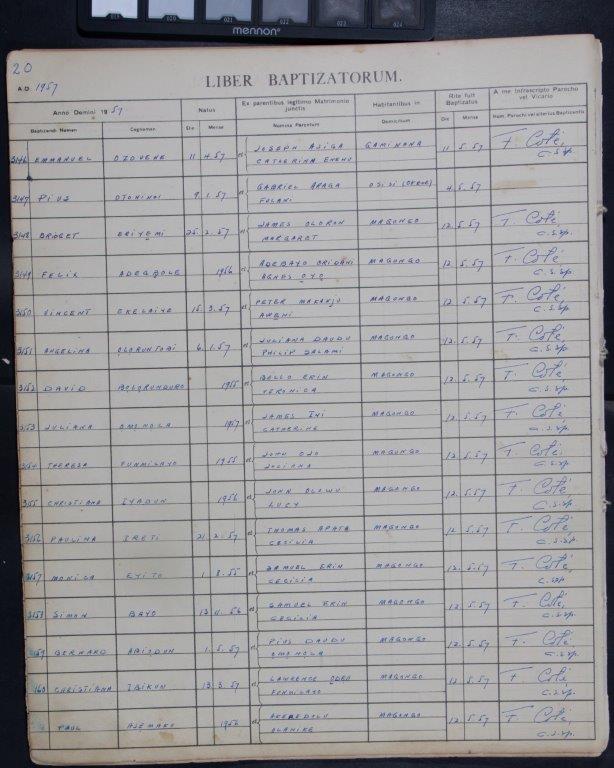 mennon
20
LIBER BAPTIZATORUM.
A.D. 1957
Anno Domini 1957 Natus Ex parentibus legitimo Matrimonio junctis Habitantibus in Rite fuit Baptizatus A me Infrascripto Parocho vel. Vicario
Baptizandi Nomen Cognomen Die Mense Nomina Parentum Domicilium Die Mense Nom. Parochi vel alterius Baptizantis
3146 EMMANUEL 11 4.57 et JOSEPH GAMINANA 11 5.57 F. Coté,
CATHERINA C.S.Sp.
3147 PIUS 9.1.57 et GABRIEL ARAGA OSISI 4.5.57
FULANI
3148 BRIDGET ERIYEMI 25.2.57 et JAMES OLORON MAGONGO 12.5.57 F. Coté
MARGARET C.S.Sp.
3149 FELIX ADEGBOLE 1956 et ADEBAYO MAGONGO 12.5.57 F. Coté,
AGNES OYO C.S.Sp.
3150 VINCENT EKELAIYE 15.3.57 et PETER MAKANJU MAGONGO 12.5.57 F. Coté,
AWENI C.S.Sp.
3151 ANGELINA OLORUNTOBI 6.1.57 et JULIANA DAUDU MAGONGO 12.5.57 F. Coté
PHILIP SALAMI C.S.Sp.
3152 DAVID BOLORUNDURO 1955 et BELLO ERIN MAGONGO 12.5.57 F. Coté
VERONICA C.S.Sp.
3153 JULIANA OMONOLA 1957 et JAMES INI MAGONGO 12.5.57 F. Coté
CATHERINE C.S.Sp.
3154 THERESA FUNMILAYO 1955 et JOHN OJO MAGONGO 12.5.57 F. Coté,
JULIANA C.S.Sp.
3155 CHRISTIANA IYADUN 1956 et JOHN OLOWU MAGONGO 12.5.57 F. Coté
LUCY C.S.Sp.
3156 PAULINA IRETI 21.2.57 et THOMAS APATA MAGONGO 12.5.57 F. Coté
CECILIA C.S.Sp.
3157 MONICA EYITO 1.8.55 et SAMUEL ERIN MAGONGO 12.5.57 F. Coté,
CECILIA C.S.Sp.
3158 SIMON BAYO 13.11.56 et SAMUEL ERIN MAGONGO 12.5.57 F. Coté,
CECILIA C.S.Sp.
3159 BERNARD ABIODUN 1.5.57 et PIUS DAUDU MAGONGO 12.5.57 F. Coté
OMONOLA C.S.Sp.
3160 CHRISTIANA IBIKUN 13.3.57 et LAWRENCE MAGONGO 12.5.57 F. Coté
FUNMILAYO C.S.Sp.
PAUL AJEMAKO 1956 et AKEREDOLU MAGONGO 12.5.57 F. Coté,
OLANIKE C.S.Sp.